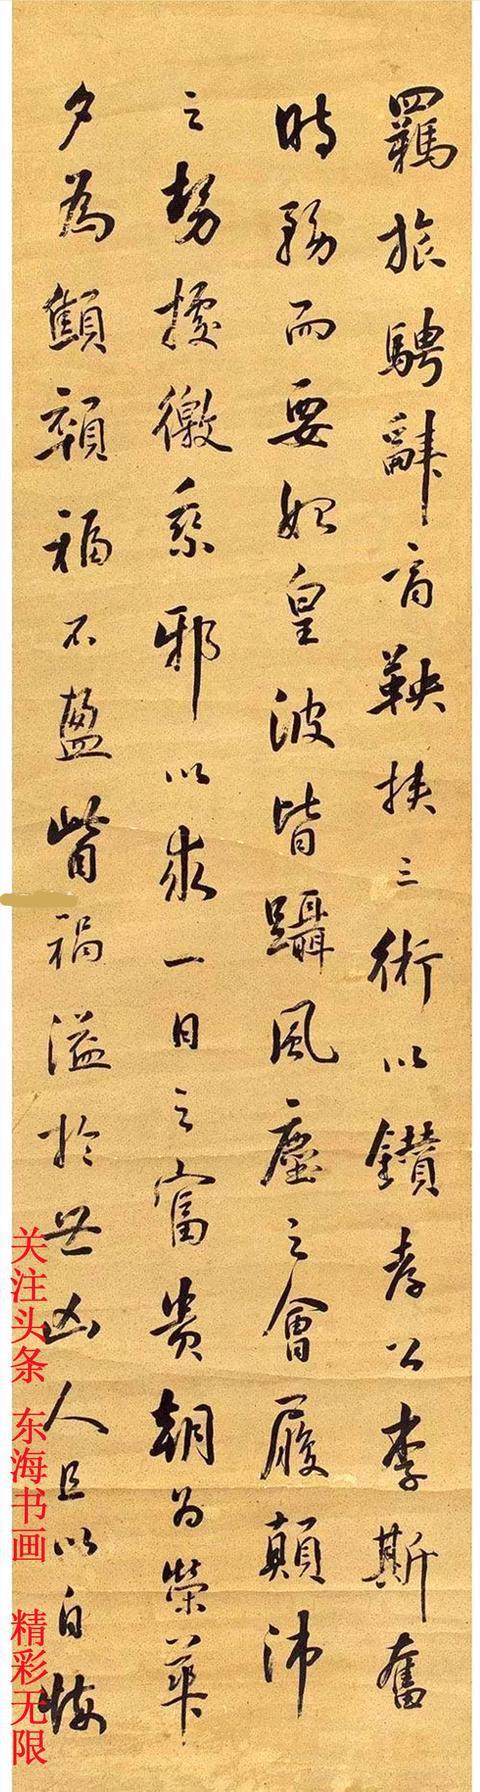 羈旅騁辭商鞅挾三術以鑽孝公李斯奮
時務而要始皇彼皆躡風塵之會履顛沛
之勢據徼乘邪以求一日之富貴朝為榮華
夕為顦顇福不盈眥禍溢於世凶人且以自悔
关注头条 东海书画 精彩无限